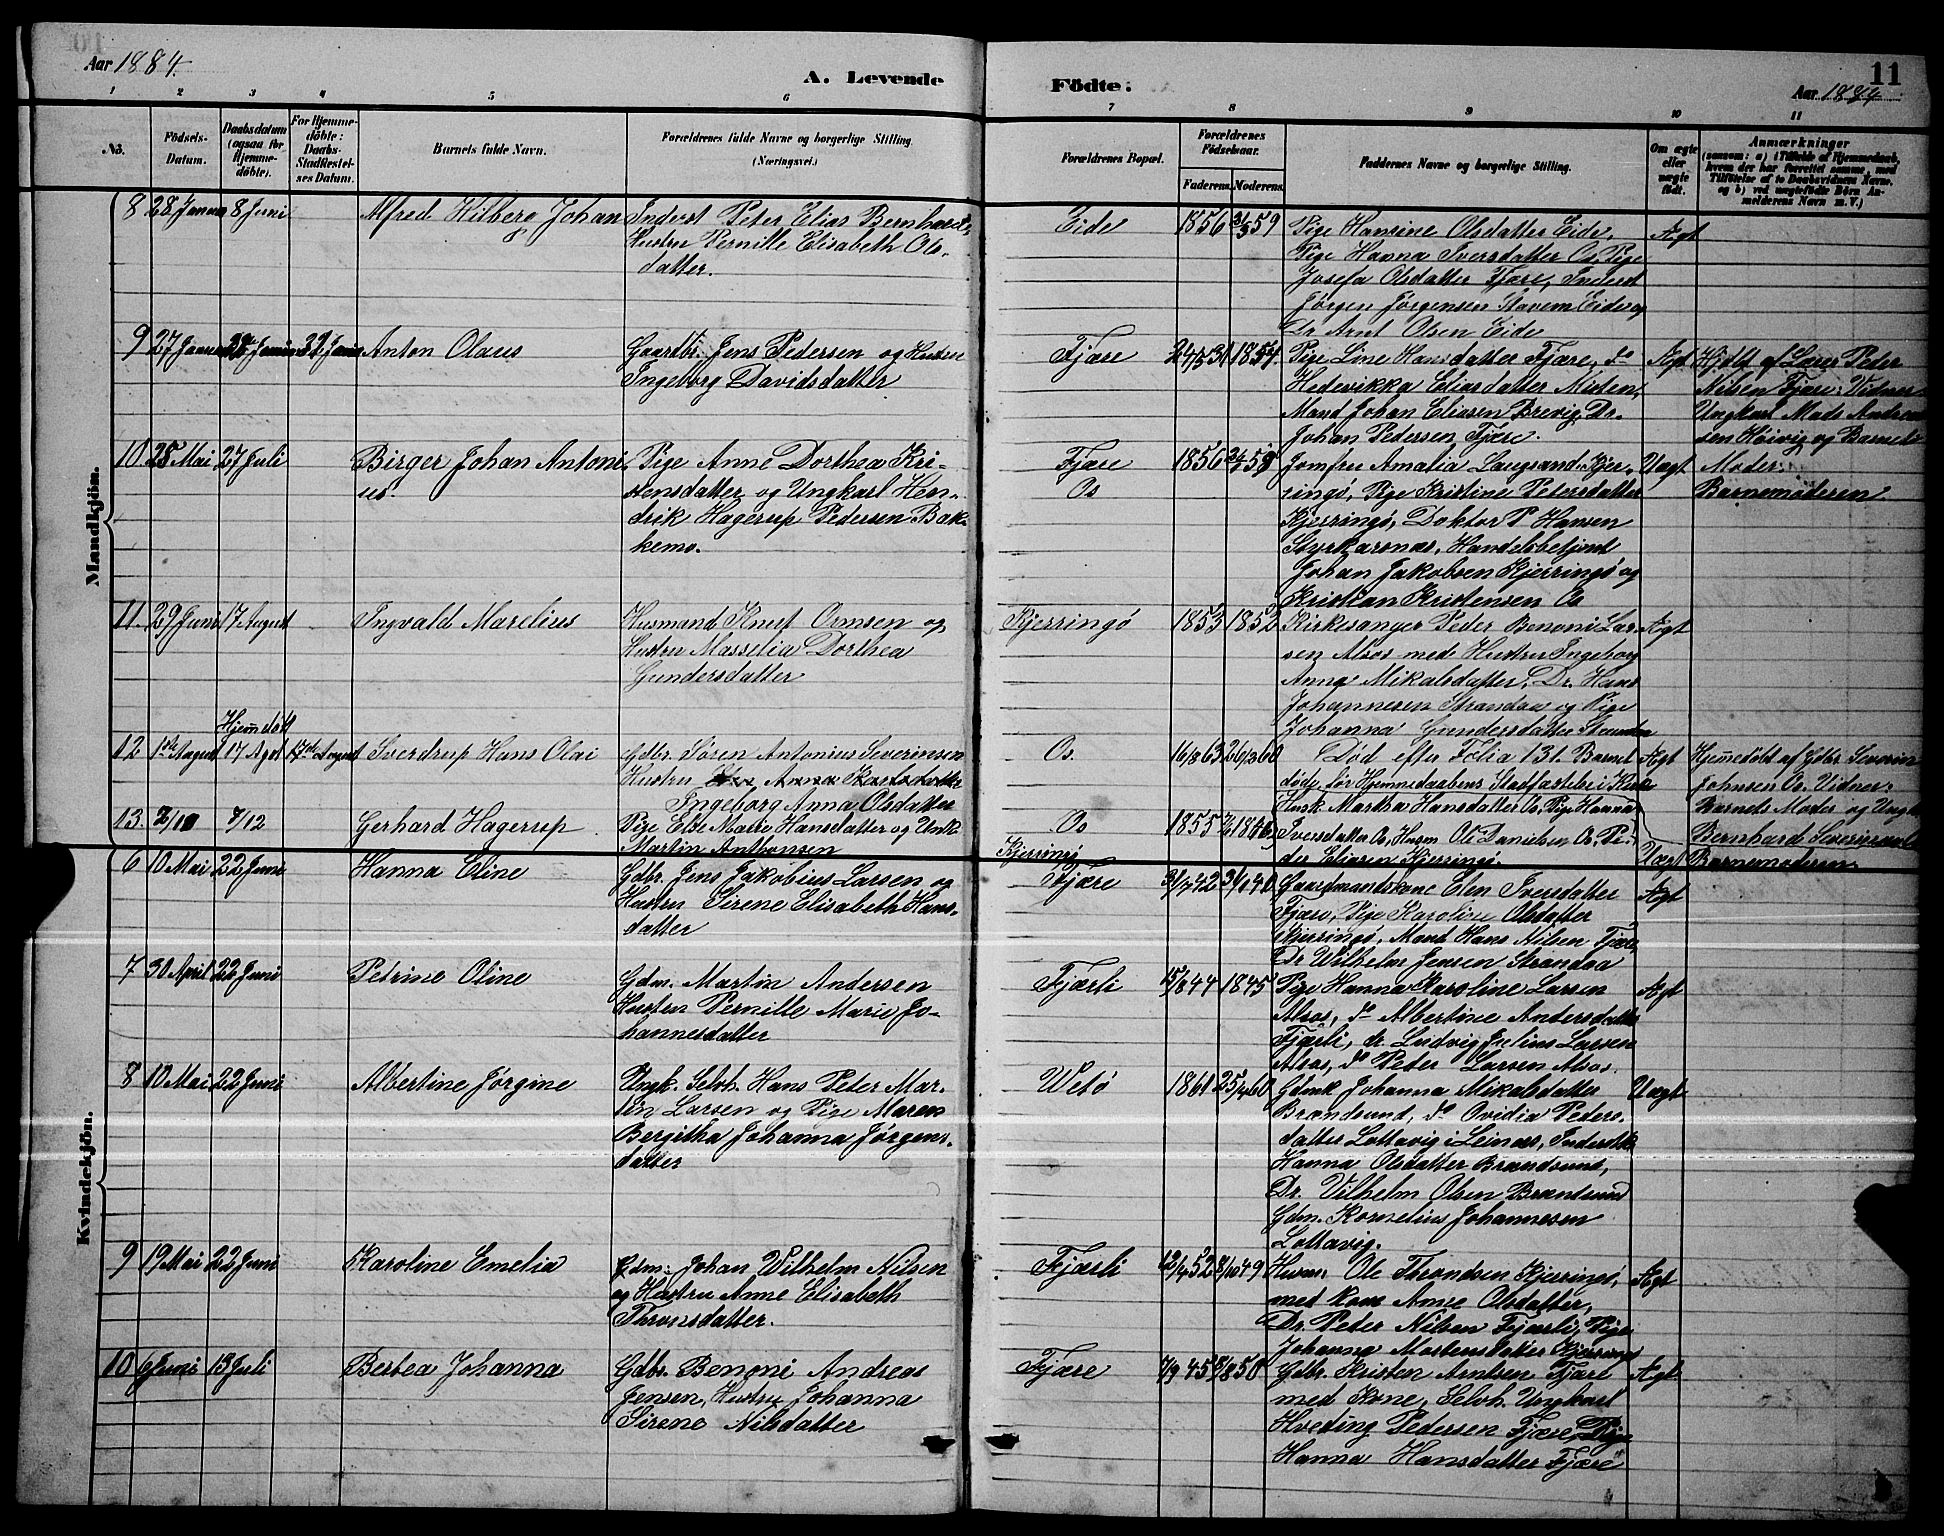 Aar 1884.
A. Levende
Födte:
11
Aar 1884
1 2 3 4 5 6 7 8 9 10 11
No.
Födsels-
Datum.
Daabsdatum
(ogsaa for
Hjemme-
döbte).
For Hjemme-
döbte:
Daabs-
Stadfæstel-
ses Datum.
Barnets fulde Navn.
Forældrenes fulde Navne og borgerlige Stilling.
(Næringsvei.)
Forældrenes Bopæl.
Forældrenes
Födselsaar.
Faderens. Moderens.
Faddernes Navne og borgerlige Stilling.
Om ægte
eller
uægte
födt.
Anmærkninger
(saasom: a) i Tilfælde af Hjemmedaab,
hvem der har forrettet samme, med
Tilföielse af to Daabsvidners Navne,
og b) ved uægtefödte Börn An-
melderens Navn m. V.)
Mandkjön.
8 28 Januar 8 Juni
Alfred Hilberg Johan
Inderst Peter Elias Bernhard
Hustru Pernille Elisabeth Ols-
datter.
Eide
1856 59
Pige Hansine Olsdatter Eide,
Pige Hanna Iversdatter Os, Pige
Josefa Olsdatter Fjære, Inderst
Jørgen Jørgensen Stavem Eide og
Dr. Arnt Olsen Eide
Ægt
9 27 Januar
Anton Olaus
Gaardbr. Jens Pedersen og Hustru
Ingeborg Davidsdatter
Fjære
1854.
Pige Line Hansdatter Fjære, do
Hedevikka Eliasdatter Nidsen,
Mand Johan Eliasen Brevig, Dr.
Johan Pedersen Fjære.
Ægt
Hjdt af Lærer Peter
Nilsen Fjære. Vidner
Ungkarl Mads Andrea
sen Høivig og Barnets
Moder.
10 25 Mai 27 Juli
Birger Johan Antoni
us.
Pige Anne Dorthea Kri-
stensdatter og Ungkarl Hen-
drik Hagerup Pedersen Bak-
kemo.
Fjære
Os
1856
Jomfru Amalia Langsand Kjer-
ringø, Pige Kristine Petersdatter
Kjerringø, Doktor P Hansen
Styrkarsnæs, Handelsbetjent
Johan Jakobsen Kjerringø og
Kristian Kristensen Os
Uægt
Barnemoderen
11. 29 Juni 17 August
Ingvald Marelius
Husmand Knut Ormsen og
Hustru Masselia Dorthea
Gundersdatter
Kjerringø
1853 1852
Kirkesanger Peder Benoni Lar-
sen Alsos med Hustru Ingeborg
Anna Mikalsdatter, Dr. Hans
Johannesen Strandaa og Pige
Johanna Gundersdatter Strandaa
Ægt
12 1ste August Hjemdøbt 17 Agst 17de August
Sverdrup Hans Olai
Gdbr. Søren Antonius Severinsen
Hustru
Ingeborg Anna Olsdatter
Os.
16/8 63 26/2 60
Død efter Folia 131. Barnet
døde før Hjemmedaabens Stadfæstelse i Kirke
Ægt
Hjemmedöbt af Gdbr. Severin
Johnsen Os. Vidner:
Barnets Moder og Ungk.
Bernhard Severinsen
13. 7/12
Gerhard Hagerup
Pige Else Marie Hansdatter og Unk.
Martin Anthonsen
Os
Kjerringø
1855
Husk. Martha Hansdatter Os, Pige Hanna
Iversdatter Os, Husm Ole Danielsen Os, Pe-
der Eliasen Kjerringø.
Uægt
Barnemoderen
Kvindekjön.
6 10 Mai 22 Juni
Hanna Eline
Gdbr. Jens Jakobius Larsen og
Hustru Sirene Elisabeth Hans-
datter
Fjære
31/7 42 31/1 40
Gaardmandskone Elen Iversdatter
Fjære, Pige Karoline Olsdatter
Kjerringø, Mand Hans Nilsen Fjære,
Dr Wilhelm Jensen Strandaa
Ægt
7 30 April 22 Juni
Petrine Oline
Gdm. Martin Andersen
Hustru Pernille Marie Jo-
hannesdatter
Fjærli
15/8 44 1845
Pige Hanna Karoline Larsen
Alsos, do Albertine Andersdatter
Fjærli, dr. Ludvig Julius Larsen
Alsos, do Peter Larsen Alsos.
Ægt
8 10 Mai 22 Juni
Albertine Jørgine
Ungk. Selvh. Hans Peter Mar-
tin Larsen og Pige Maren
Bergitha Johanna Jørgens-
datter
Wetø
1861 25/4 60
Gdmk Johanna Mikalsdatter
Brændsund, do Ovidia Peders-
datter Lottavig i Leines, Inderstk
Hanna Olsdatter Brændsund,
Dr. Vilhelm Olsen Brændsund
Gdm. Kornelius Johannesen
Lottavig.
Uægt
9 19 Mai 22 Juni
Karoline Emelia
Gdm. Johan Wilhelm Nilsen
og Hustru Anne Elisabeth
Thronsdatter.
Fjærli
12/4 52 8/10 49
Husm. Ole Throndsen Kjerringø,
med kone Anne Olsdatter,
Dr. Peter Nilsen Fjærli, Pige
Johanna Mortensdatter Kjerringø
Ægt
10 6 Juni 13 Juli
Bertea Johanna
Gdbr. Benoni Andreas
Jensen, Hustru Johanna
Sirene Nilsdatter
Fjære
7/9 45 8/8 50
Gdbr. Kristen Arntsen Fjære
med Kone, Selvh. Ungkarl
Hveding Pedersen Fjære, Pige
Hanna Hansdatter Fjære
Ægt